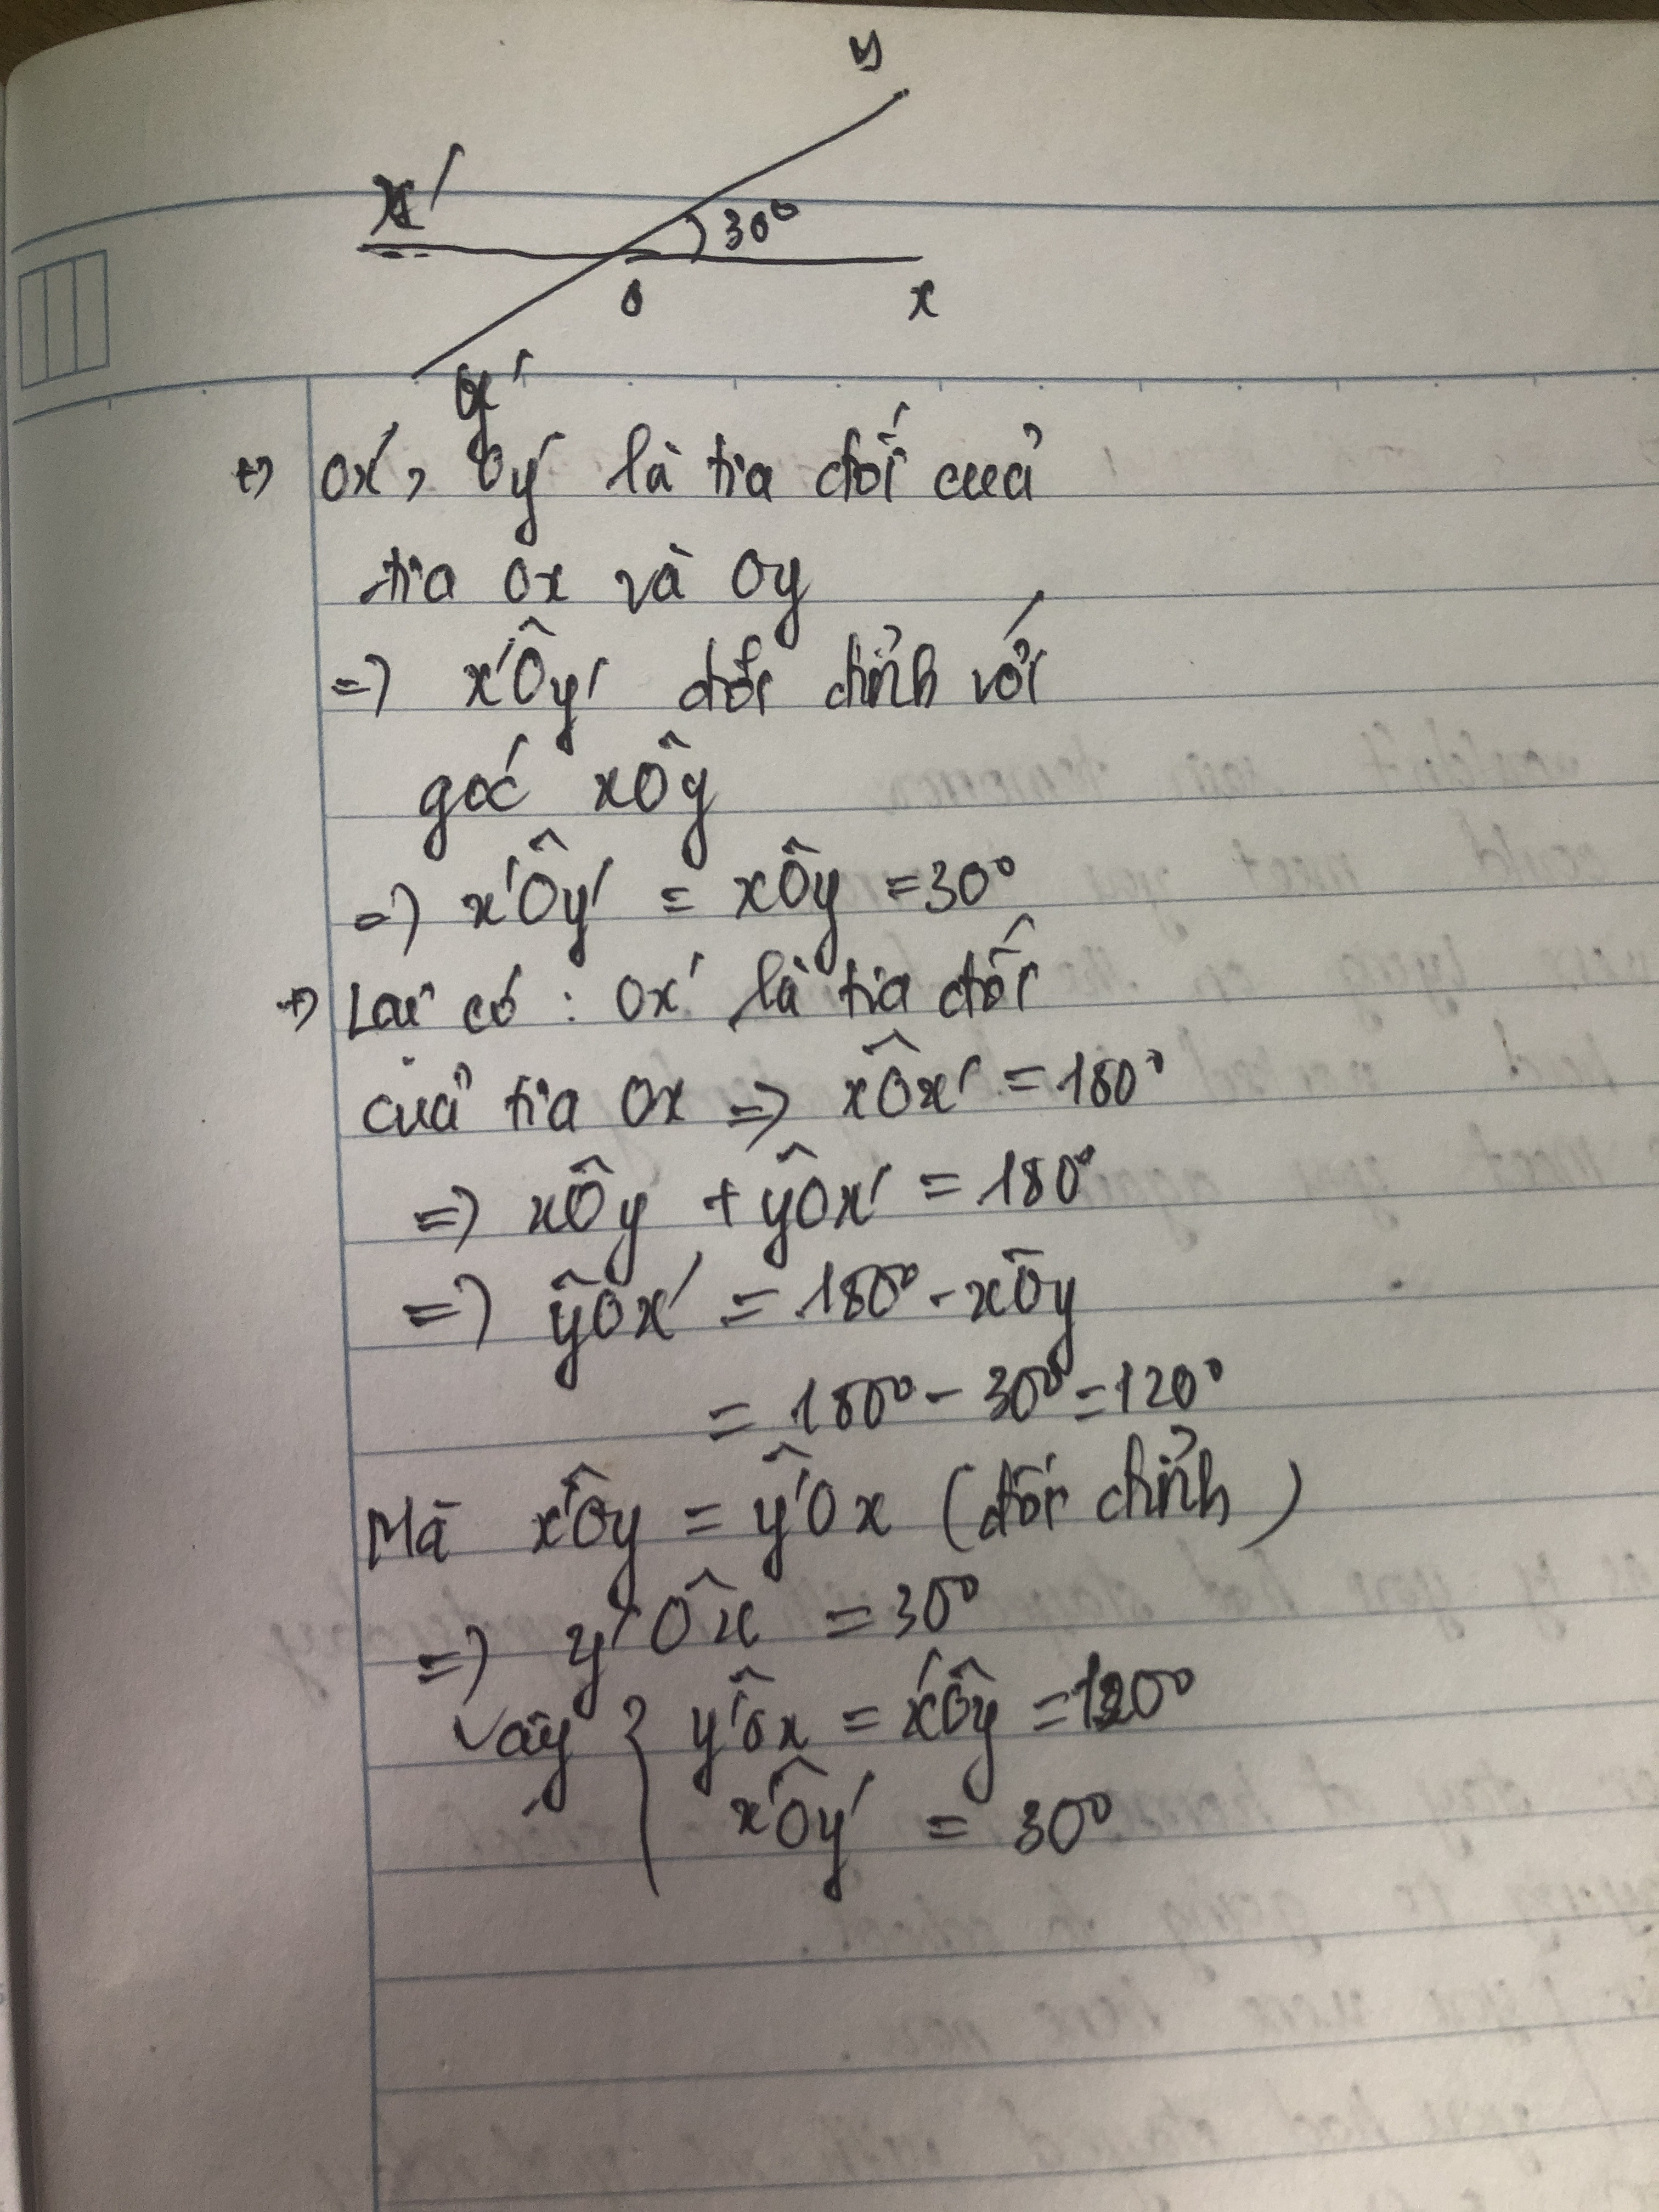 y
x'
30°
O
x
y'
+) Ox', Oy' là tia đối của
tia Ox và Oy
=) x'Ôy' đối đỉnh với
góc xÔy
=) x'Ôy' = xÔy = 30°
+) Lại có : Ox' là tia đối
của tia Ox =) xÔx' = 180°
=) xÔy + ŷOx' = 180°
=) ŷOx' = 180° - xÔy
= 180° - 30° = 120°
Mà x'Ôy = y'Ôx (đối đỉnh)
=) y'Ôx = 30°
Vậy { y'Ôx = x'Ôy = 120°
x'Ôy' = 30°